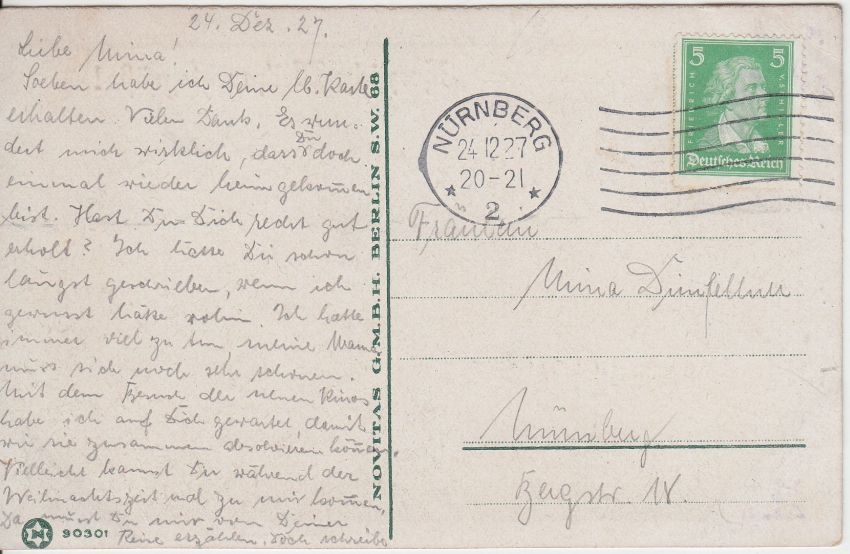 24. Dez. 27.
Liebe Mina!
Soeben habe ich Deine lb. Karte
erhalten. Vielen Dank. Es wun-
dert mich wirklich, dass Du doch
einmal wieder heim gekommen
bist. Hast Du Dich recht gut
erholt? Ich hätte Dir schon
längst geschrieben, wenn ich
gewusst hätte wohin. Ich hatte
immer viel zu tun, meine Mama
muss sich noch sehr schonen.
Mit dem der neuen Kinos
habe ich auf Dich gewartet, damit
wir sie zusammen absolvieren können.
Vielleicht kannst Du während der
Weihnachtszeit mal zu mir kommen,
Da musst Du mir von Deiner
Reise erzählen. Doch schreibe
90301
NOVITAS G.M.B.H. BERLIN S.W. 68
NÜRNBERG
24.12.27
20-21
2
5 5
FRIEDRICH V. SCHILLER
Deutsches Reich
Fräulein
Mina
Nürnberg